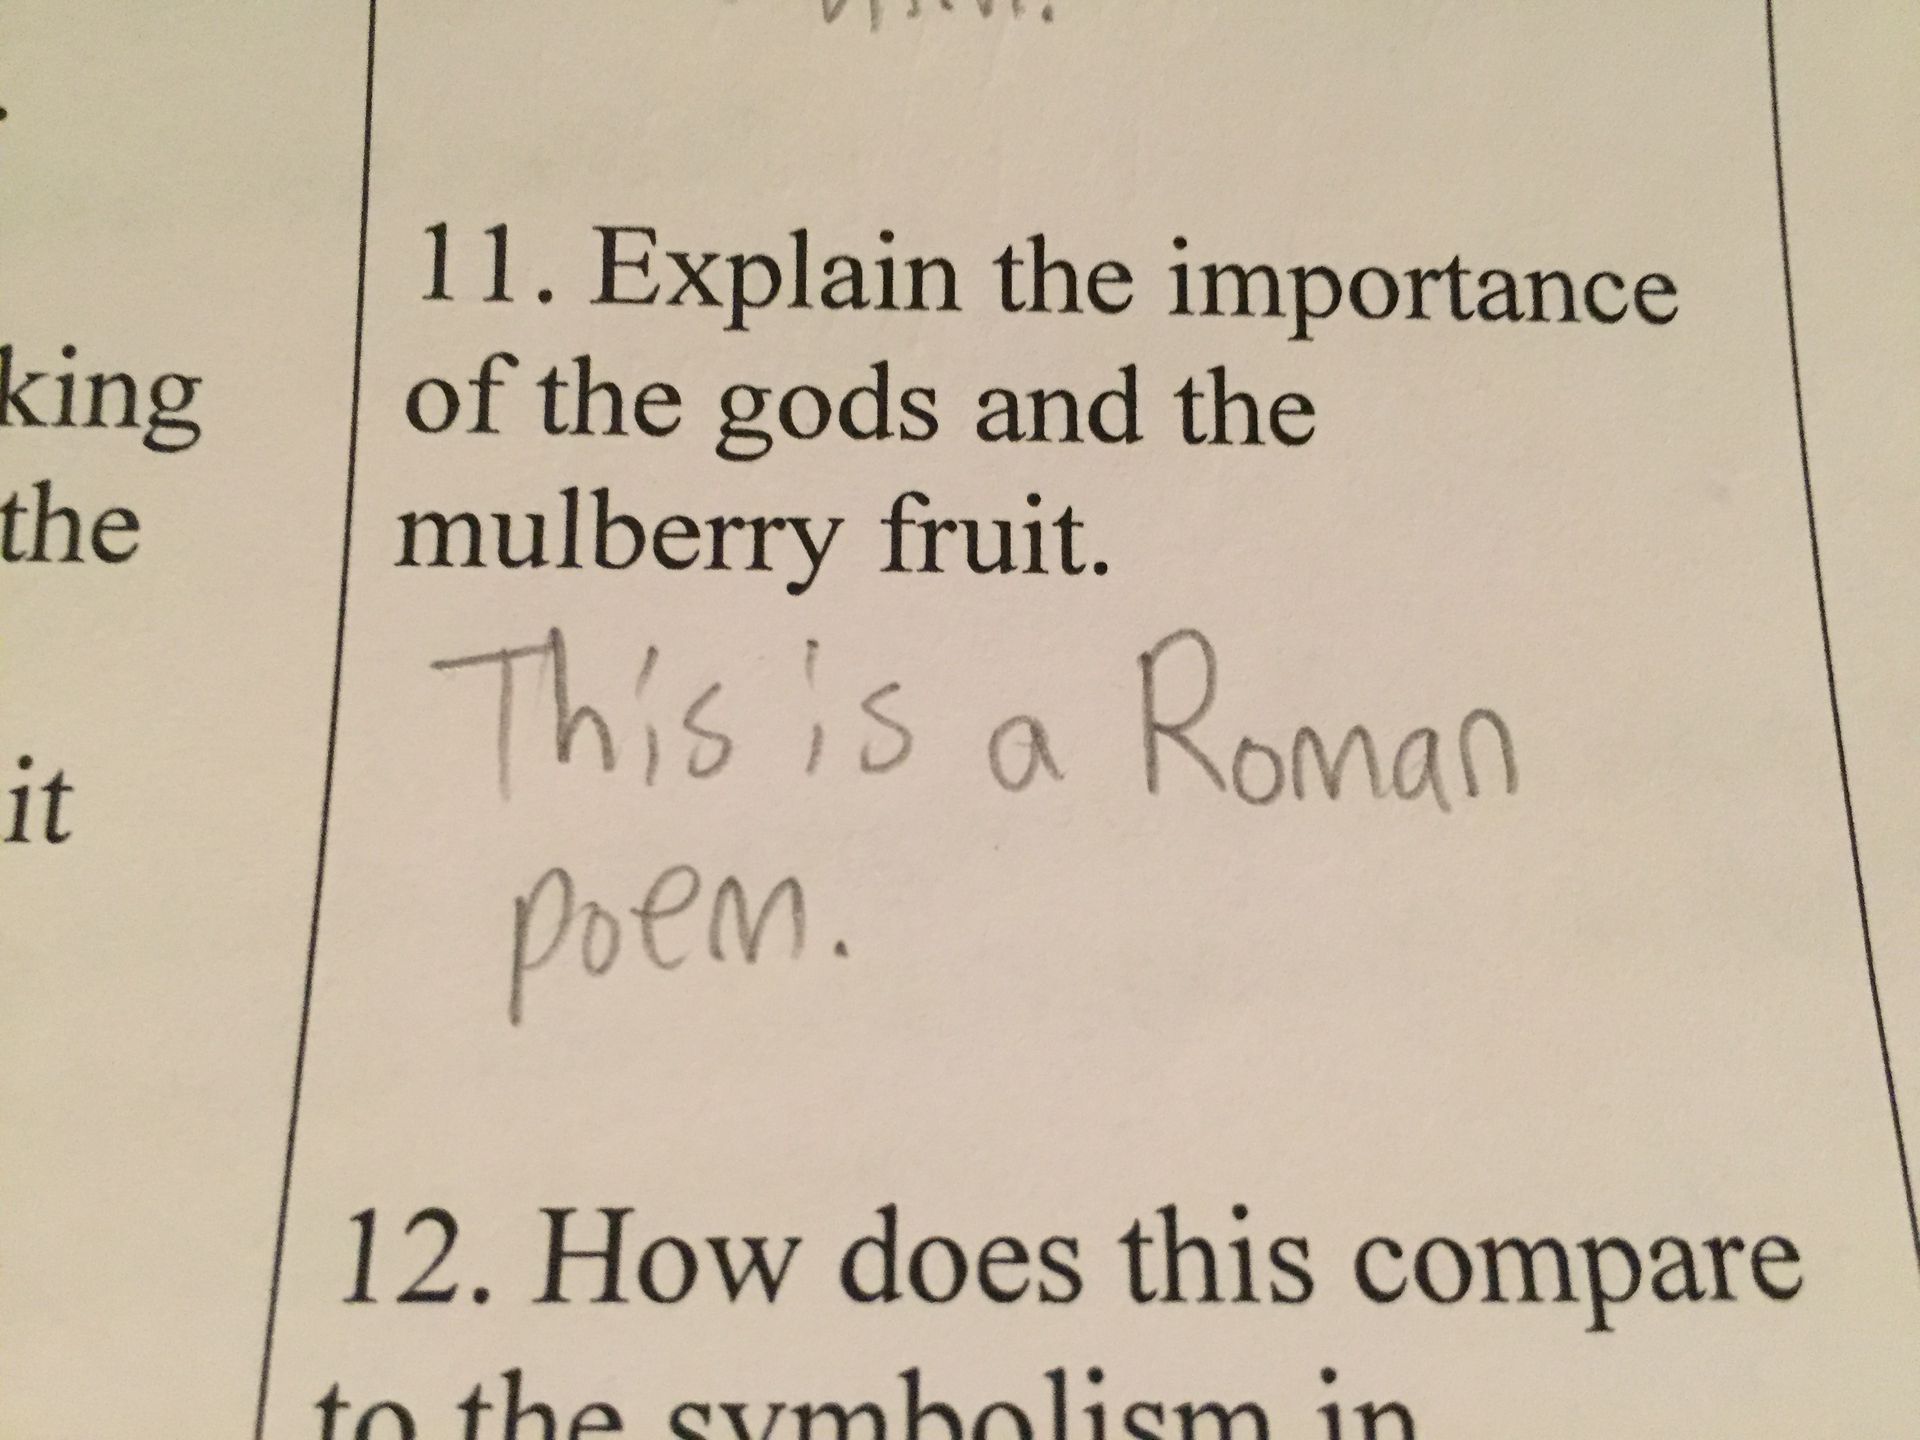 11. Explain the importance
of the gods and the
mulberry fruit.
This is a Roman
poem.
12. How does this compare
to the symbolism in
king
the
it